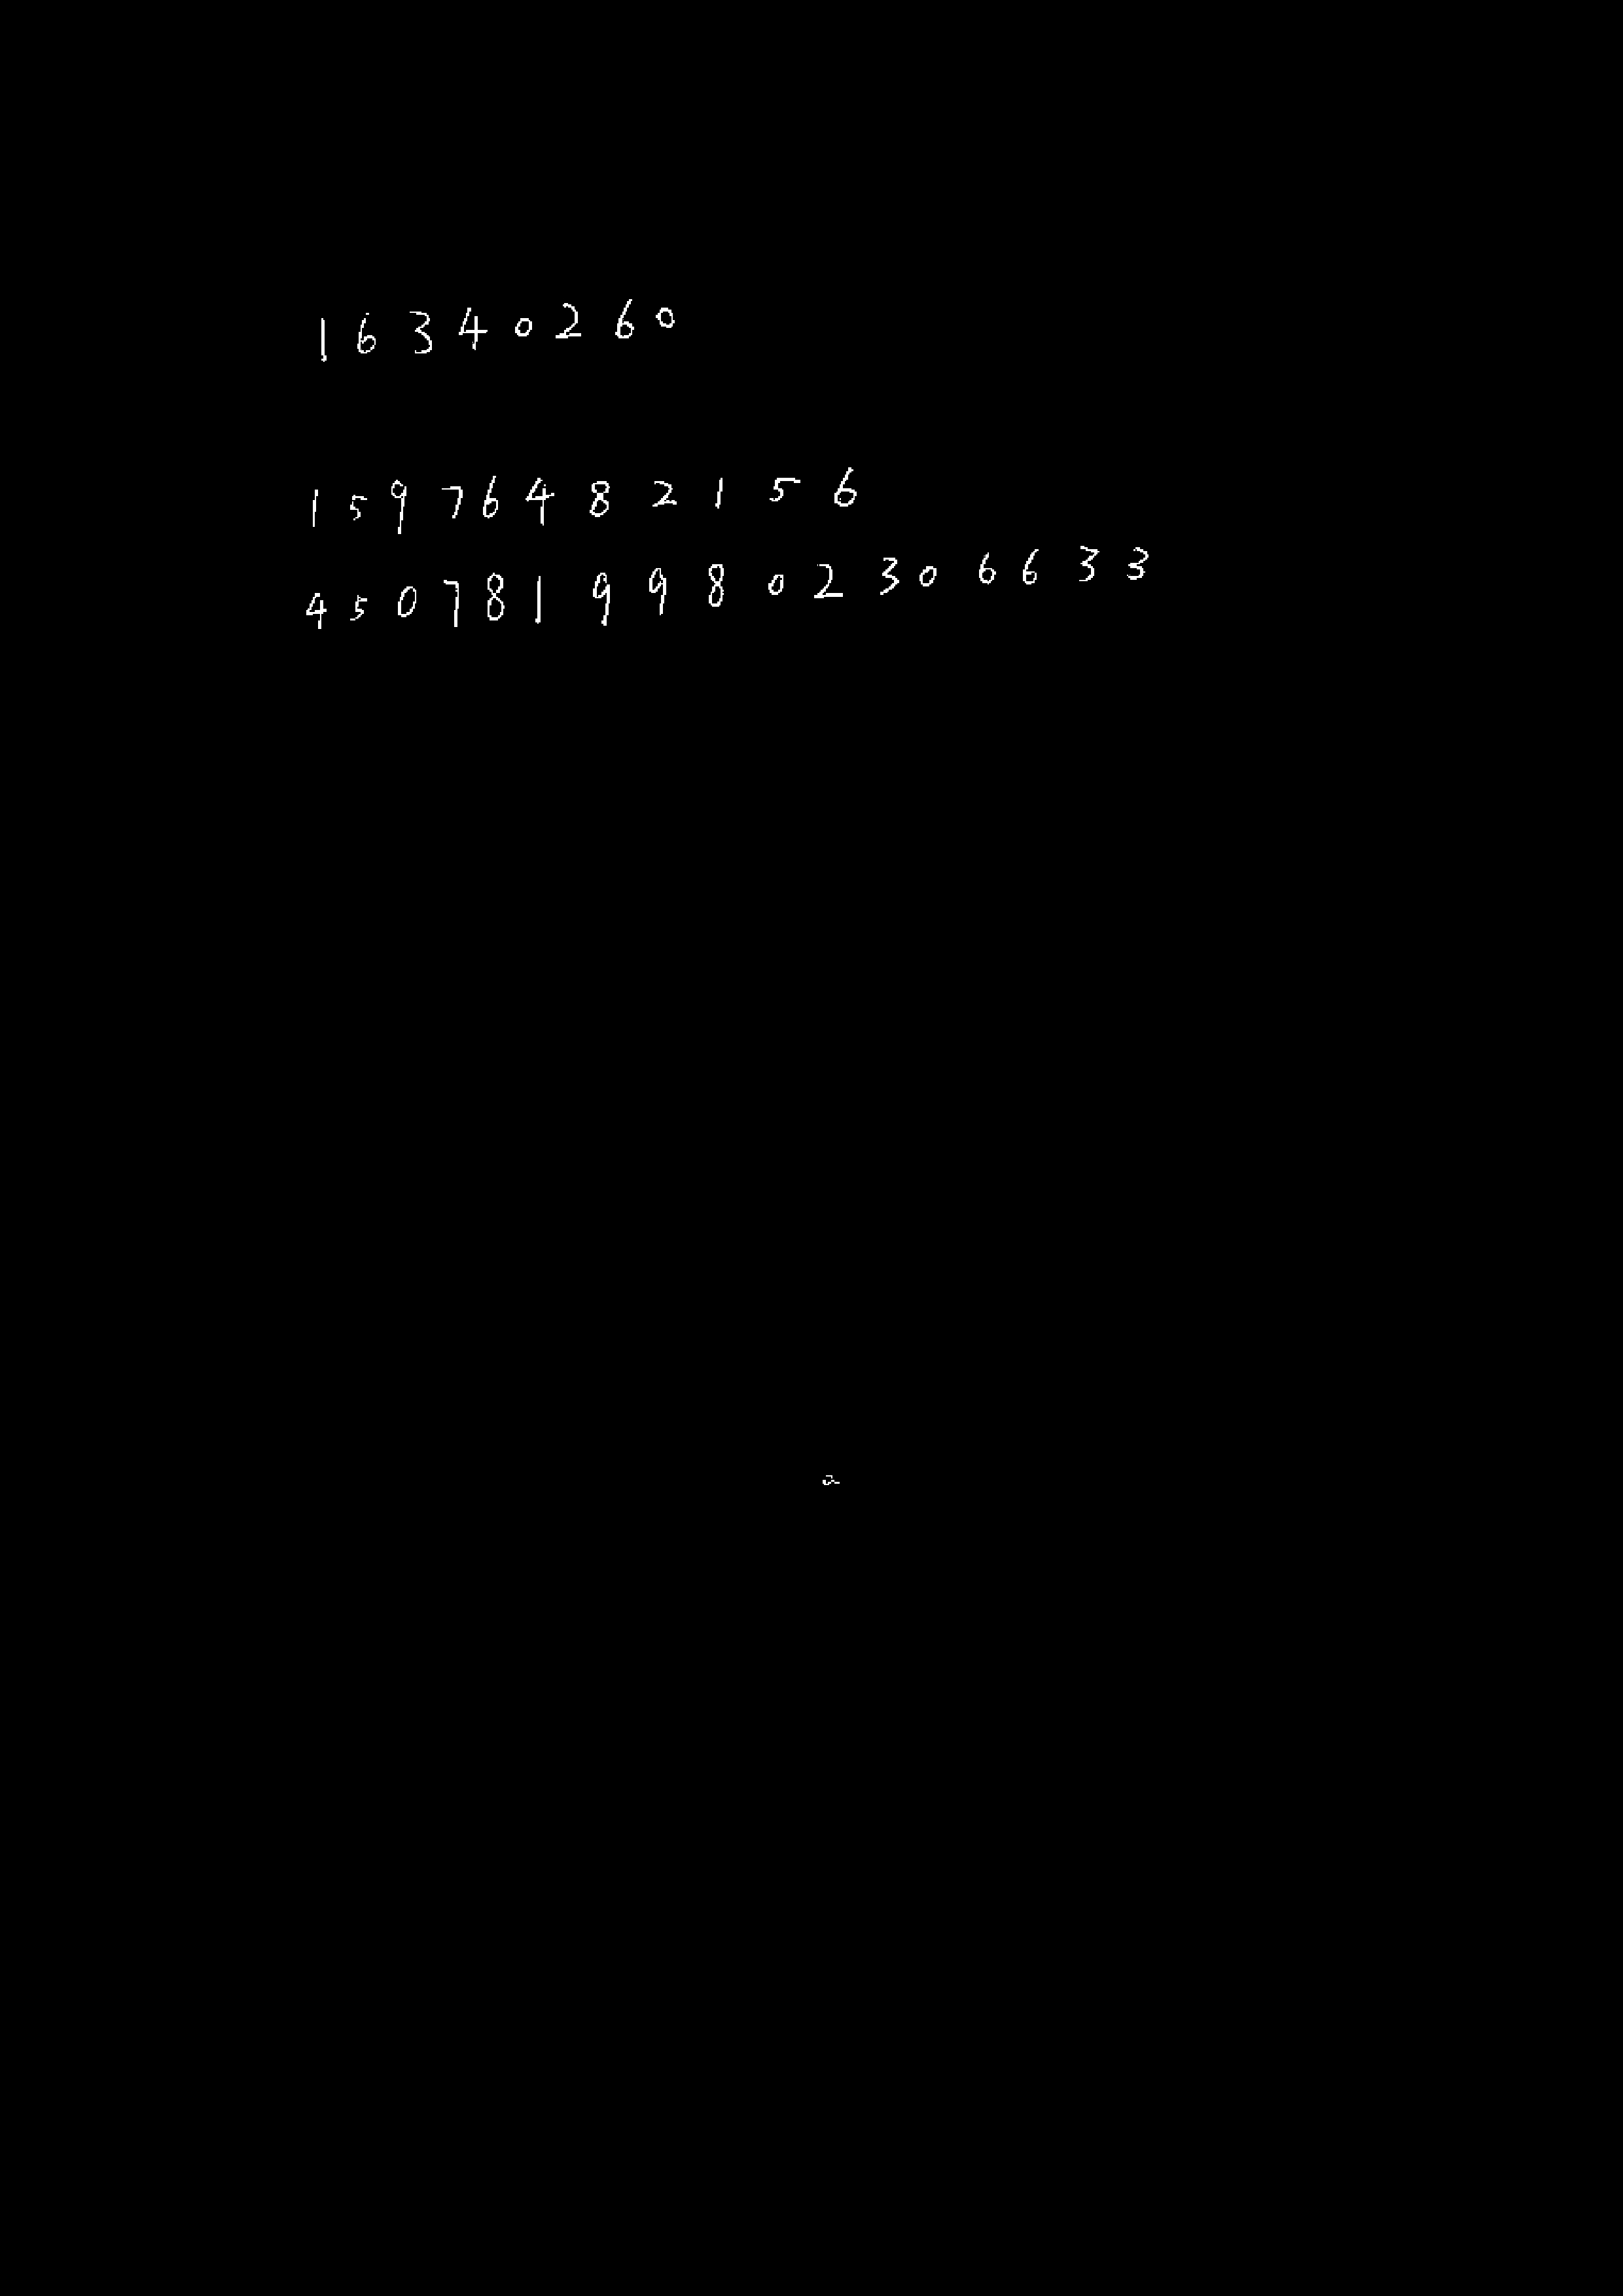 16340260
15976482156
450781199802306633